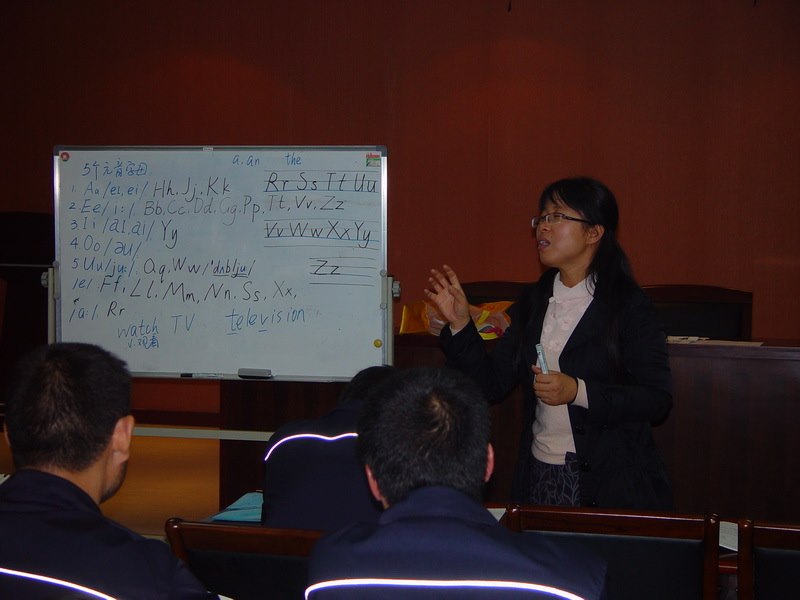 a, an the
5个元音字母
1. Aa /eɪ, ei/ Hh, Jj, Kk
2. Ee /i:/ Bb, Cc, Dd, Gg, Pp, Tt, Vv, Zz
3. Ii /aɪ, ai/ Yy
4. Oo /əu/
5 Uu /ju:/ Qq, Ww /'dʌblju/
/e/ Ff, Ll, Mm, Nn, Ss, Xx,
/a:/ Rr
watch TV television
v.观看
Rr Ss Tt Uu
Vv Ww Xx Yy
Zz